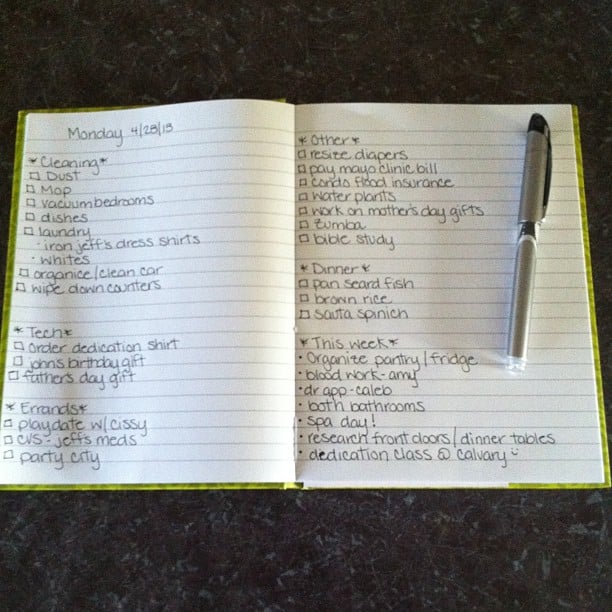 Monday 4/28/13
*Cleaning*
Dust
Mop
vacuum bedrooms
dishes
laundry
· iron jeff's dress shirts
· whites
organice/clean car
wipe down counters
*Tech*
order dedication shirt
john's birthday gift
father's day gift
*Errands*
playdate w/cissy
CVS - jeff's meds
party city
*Other*
resize diapers
pay mayo clinic bill
condo flood insurance
Water plants
work on mother's day gifts
Zumba
bible study
*Dinner*
pan seard fish
brown rice
sauta spinich
*This week*
· Organize pantry/fridge
· blood work - amy
· dr app - caleb
· both bathrooms
· spa day!
· research front doors/dinner tables
· dedication class @ calvary